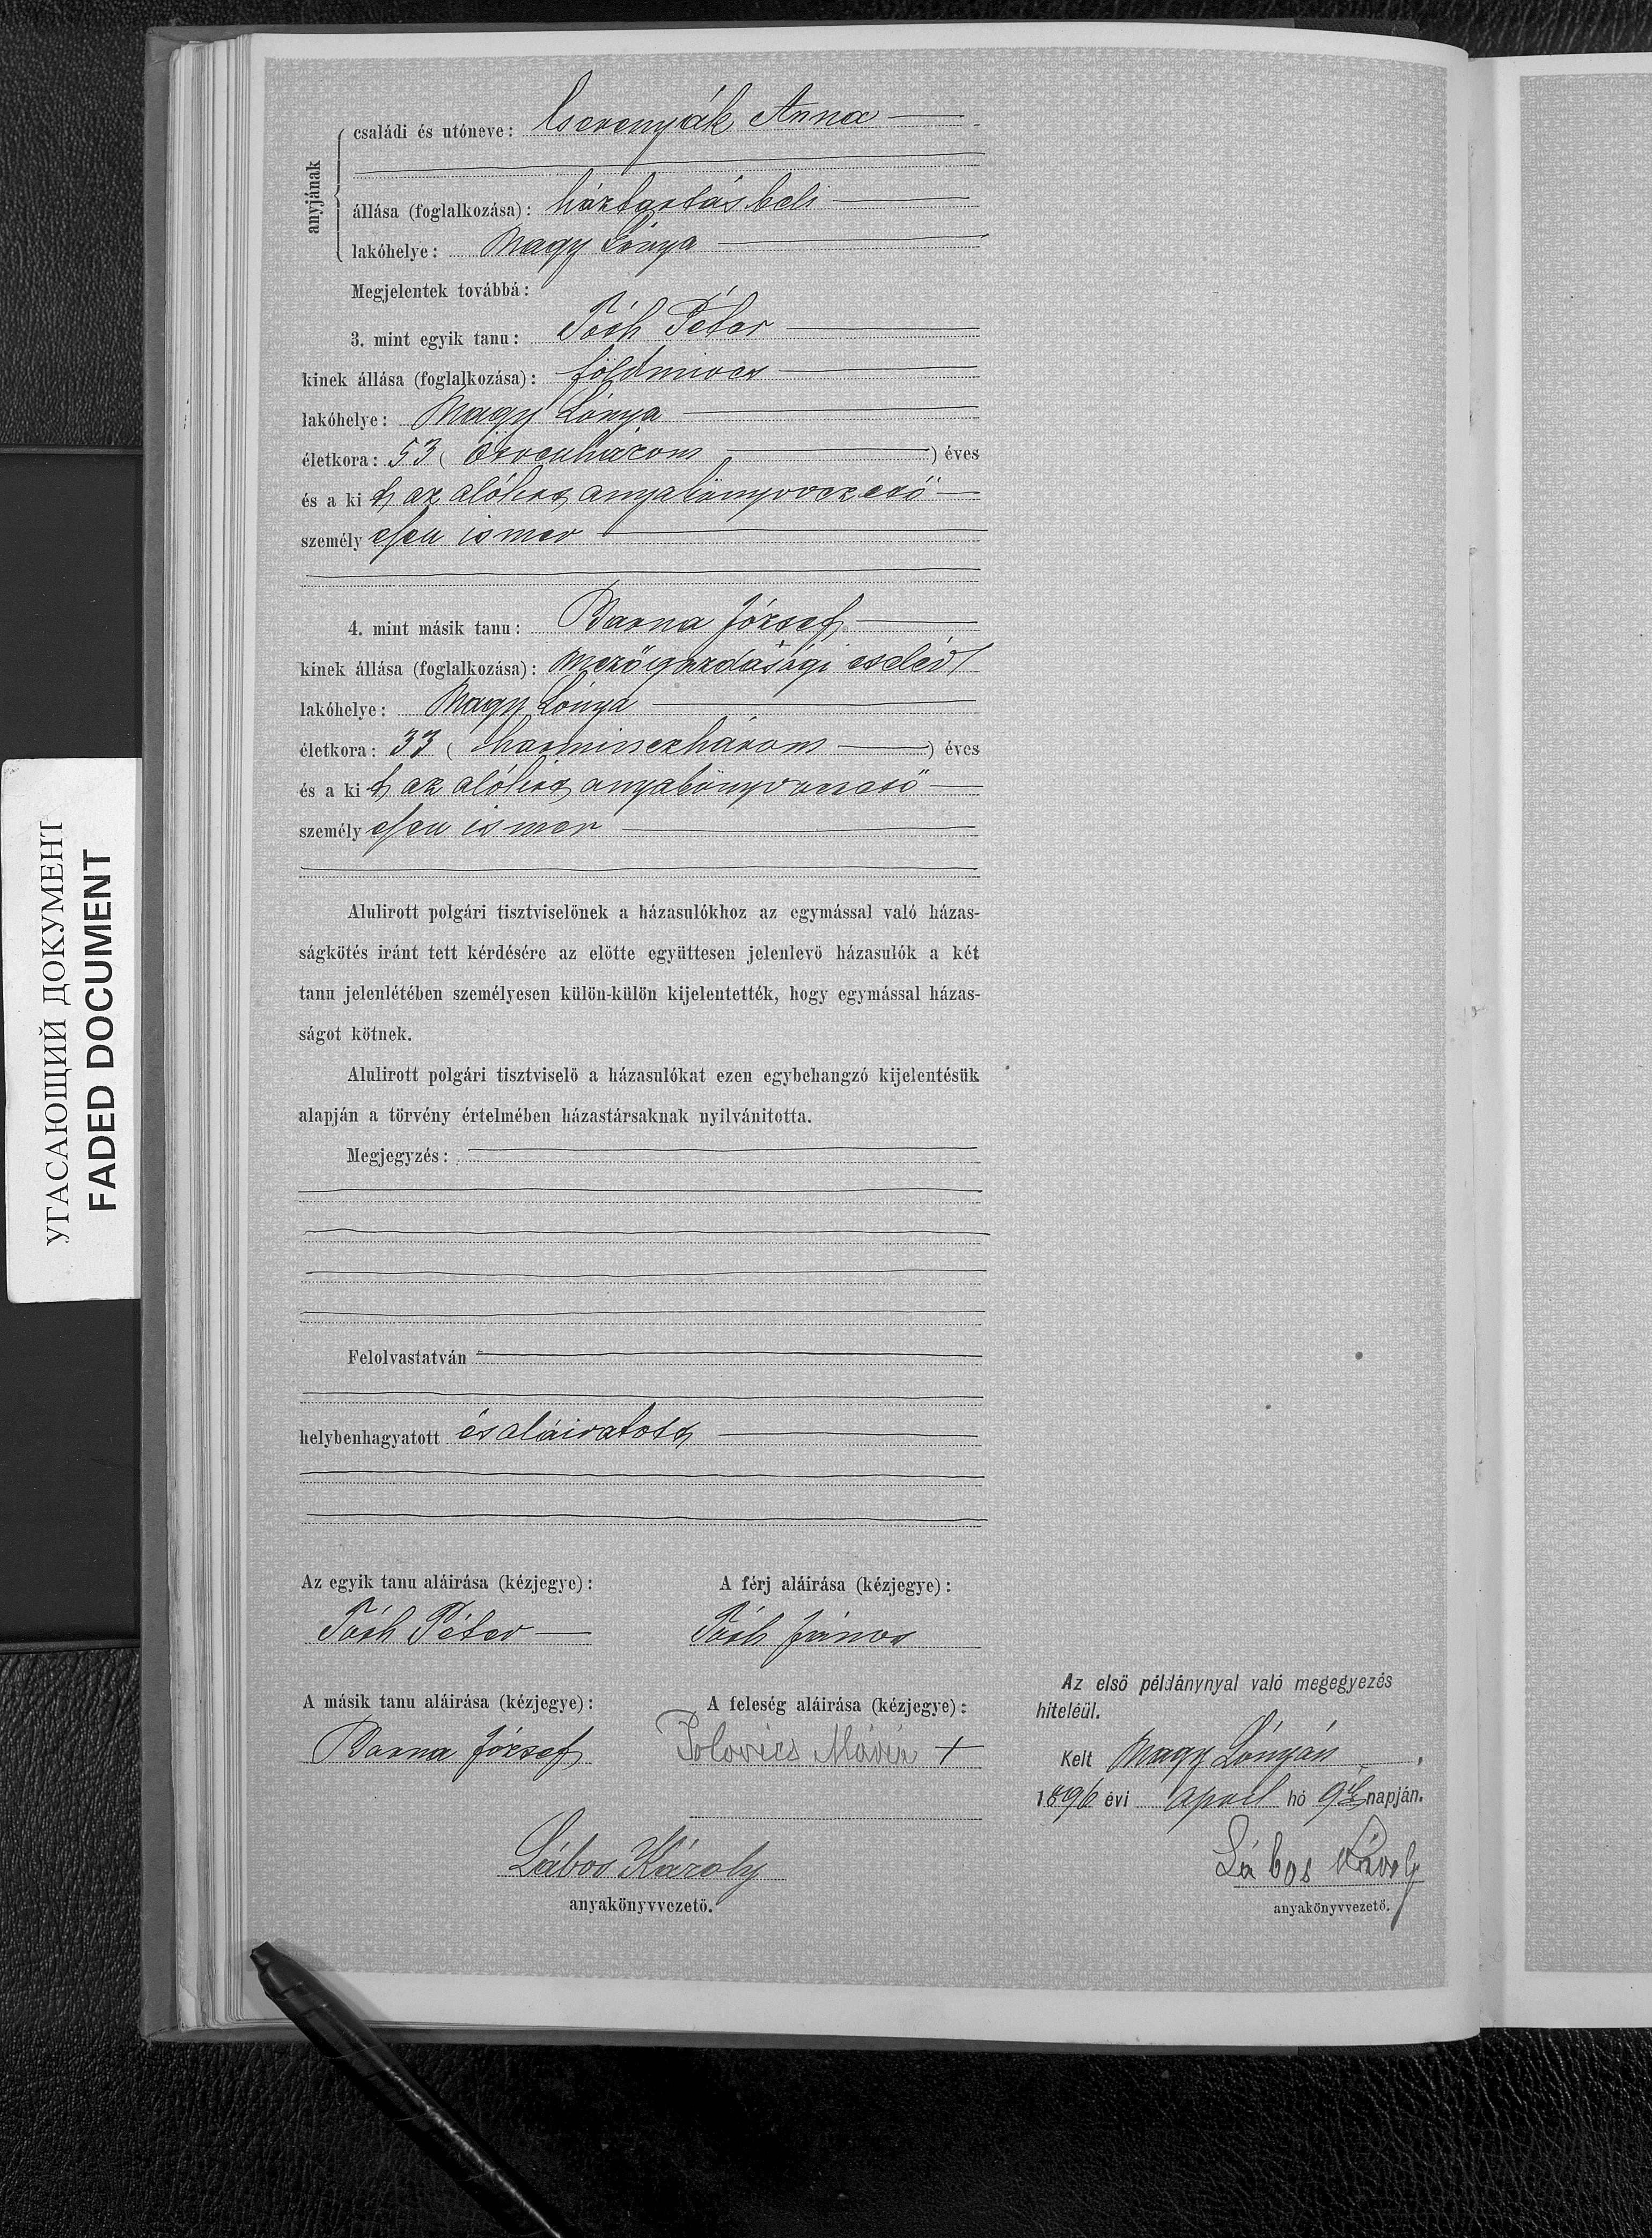 anyjának
családi és utóneve: Cserenyák Anna
állása (foglalkozása): háztartásbeli
lakóhelye: Nagy Lónya
Megjelentek továbbá:
3. mint egyik tanu: Tóth Péter
kinek állása (foglalkozása): földmives
lakóhelye: Nagy Lónya
életkora: 53 (ötvenhárom) éves
és a kit az alólirt anyakönyvvezető
személyesen ismer
4. mint másik tanu: Barna József
kinek állása (foglalkozása): mezőgazdasági cseléd
lakóhelye: Nagy Lónya
életkora: 33 (harminczhárom) éves
és a kit az alólirt anyakönyvvezető
személyesen ismer
Alulirott polgári tisztviselőnek a házasulókhoz az egymással való házas-
ságkötés iránt tett kérdésére az előtte együttesen jelenlevő házasulók a két
tanu jelenlétében személyesen külön-külön kijelentették, hogy egymással házas-
ságot kötnek.
Alulirott polgári tisztviselő a házasulókat ezen egybehangzó kijelentésük
alapján a törvény értelmében házastársaknak nyilvánitotta.
Megjegyzés:
Felolvastatván
helybenhagyatott és aláiratott
Az egyik tanu aláirása (kézjegye): A férj aláirása (kézjegye):
Tóth Péter Tóth János
A másik tanu aláirása (kézjegye): A feleség aláirása (kézjegye):
Barna József Polovics Mária +
Lábos Károly
anyakönyvvezető.
Az első példánynyal való megegyezés
hiteléül.
Kelt Nagy Lónyán
1896 évi April hó 9ik napján.
Lábos Károly
anyakönyvvezető.
УГАСАЮЩИЙ ДОКУМЕНТ
FADED DOCUMENT